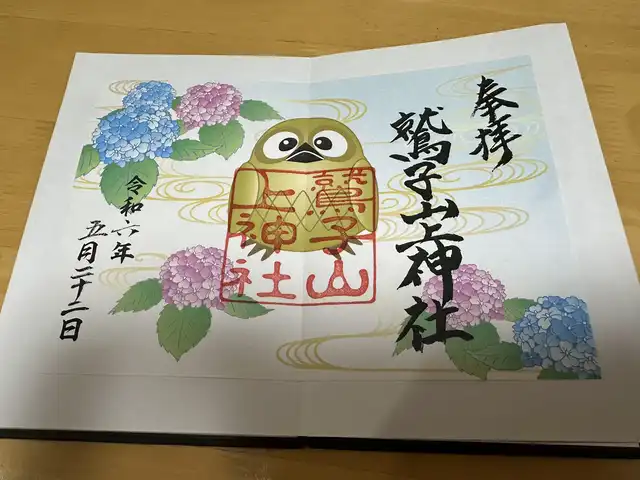 奉拝
鷲子山上神社
鷲子山
上神社
令和六年
五月二十二日